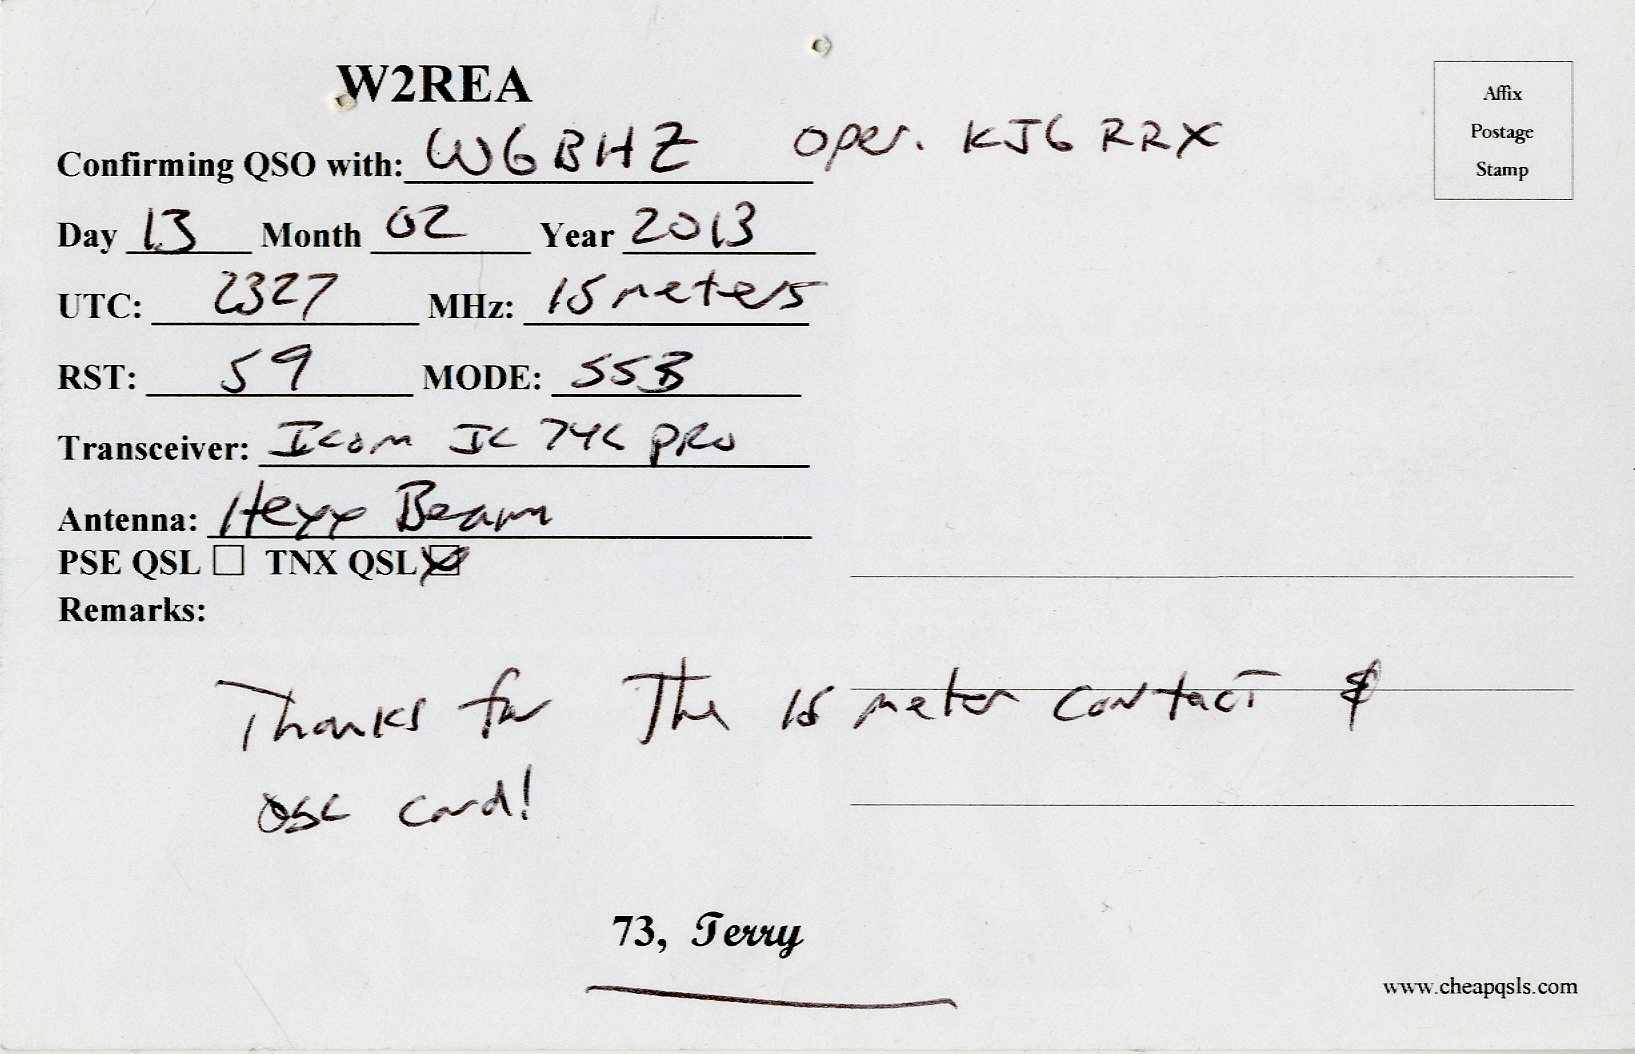 W2REA
Confirming QSO with: W6BHZ Oper. KJ6RRX
Affix
Postage
Stamp
Day 13 Month 02 Year 2013
UTC: 2327 MHz: 15 meters
RST: 59 MODE: SSB
Transceiver: Icom IC 746 PRO
Antenna: Hexx Beam
PSE QSL TNX QSL
Remarks:
Thanks for The 15 meter contact &
QSL card!
73, Terry
www.cheapqsls.com